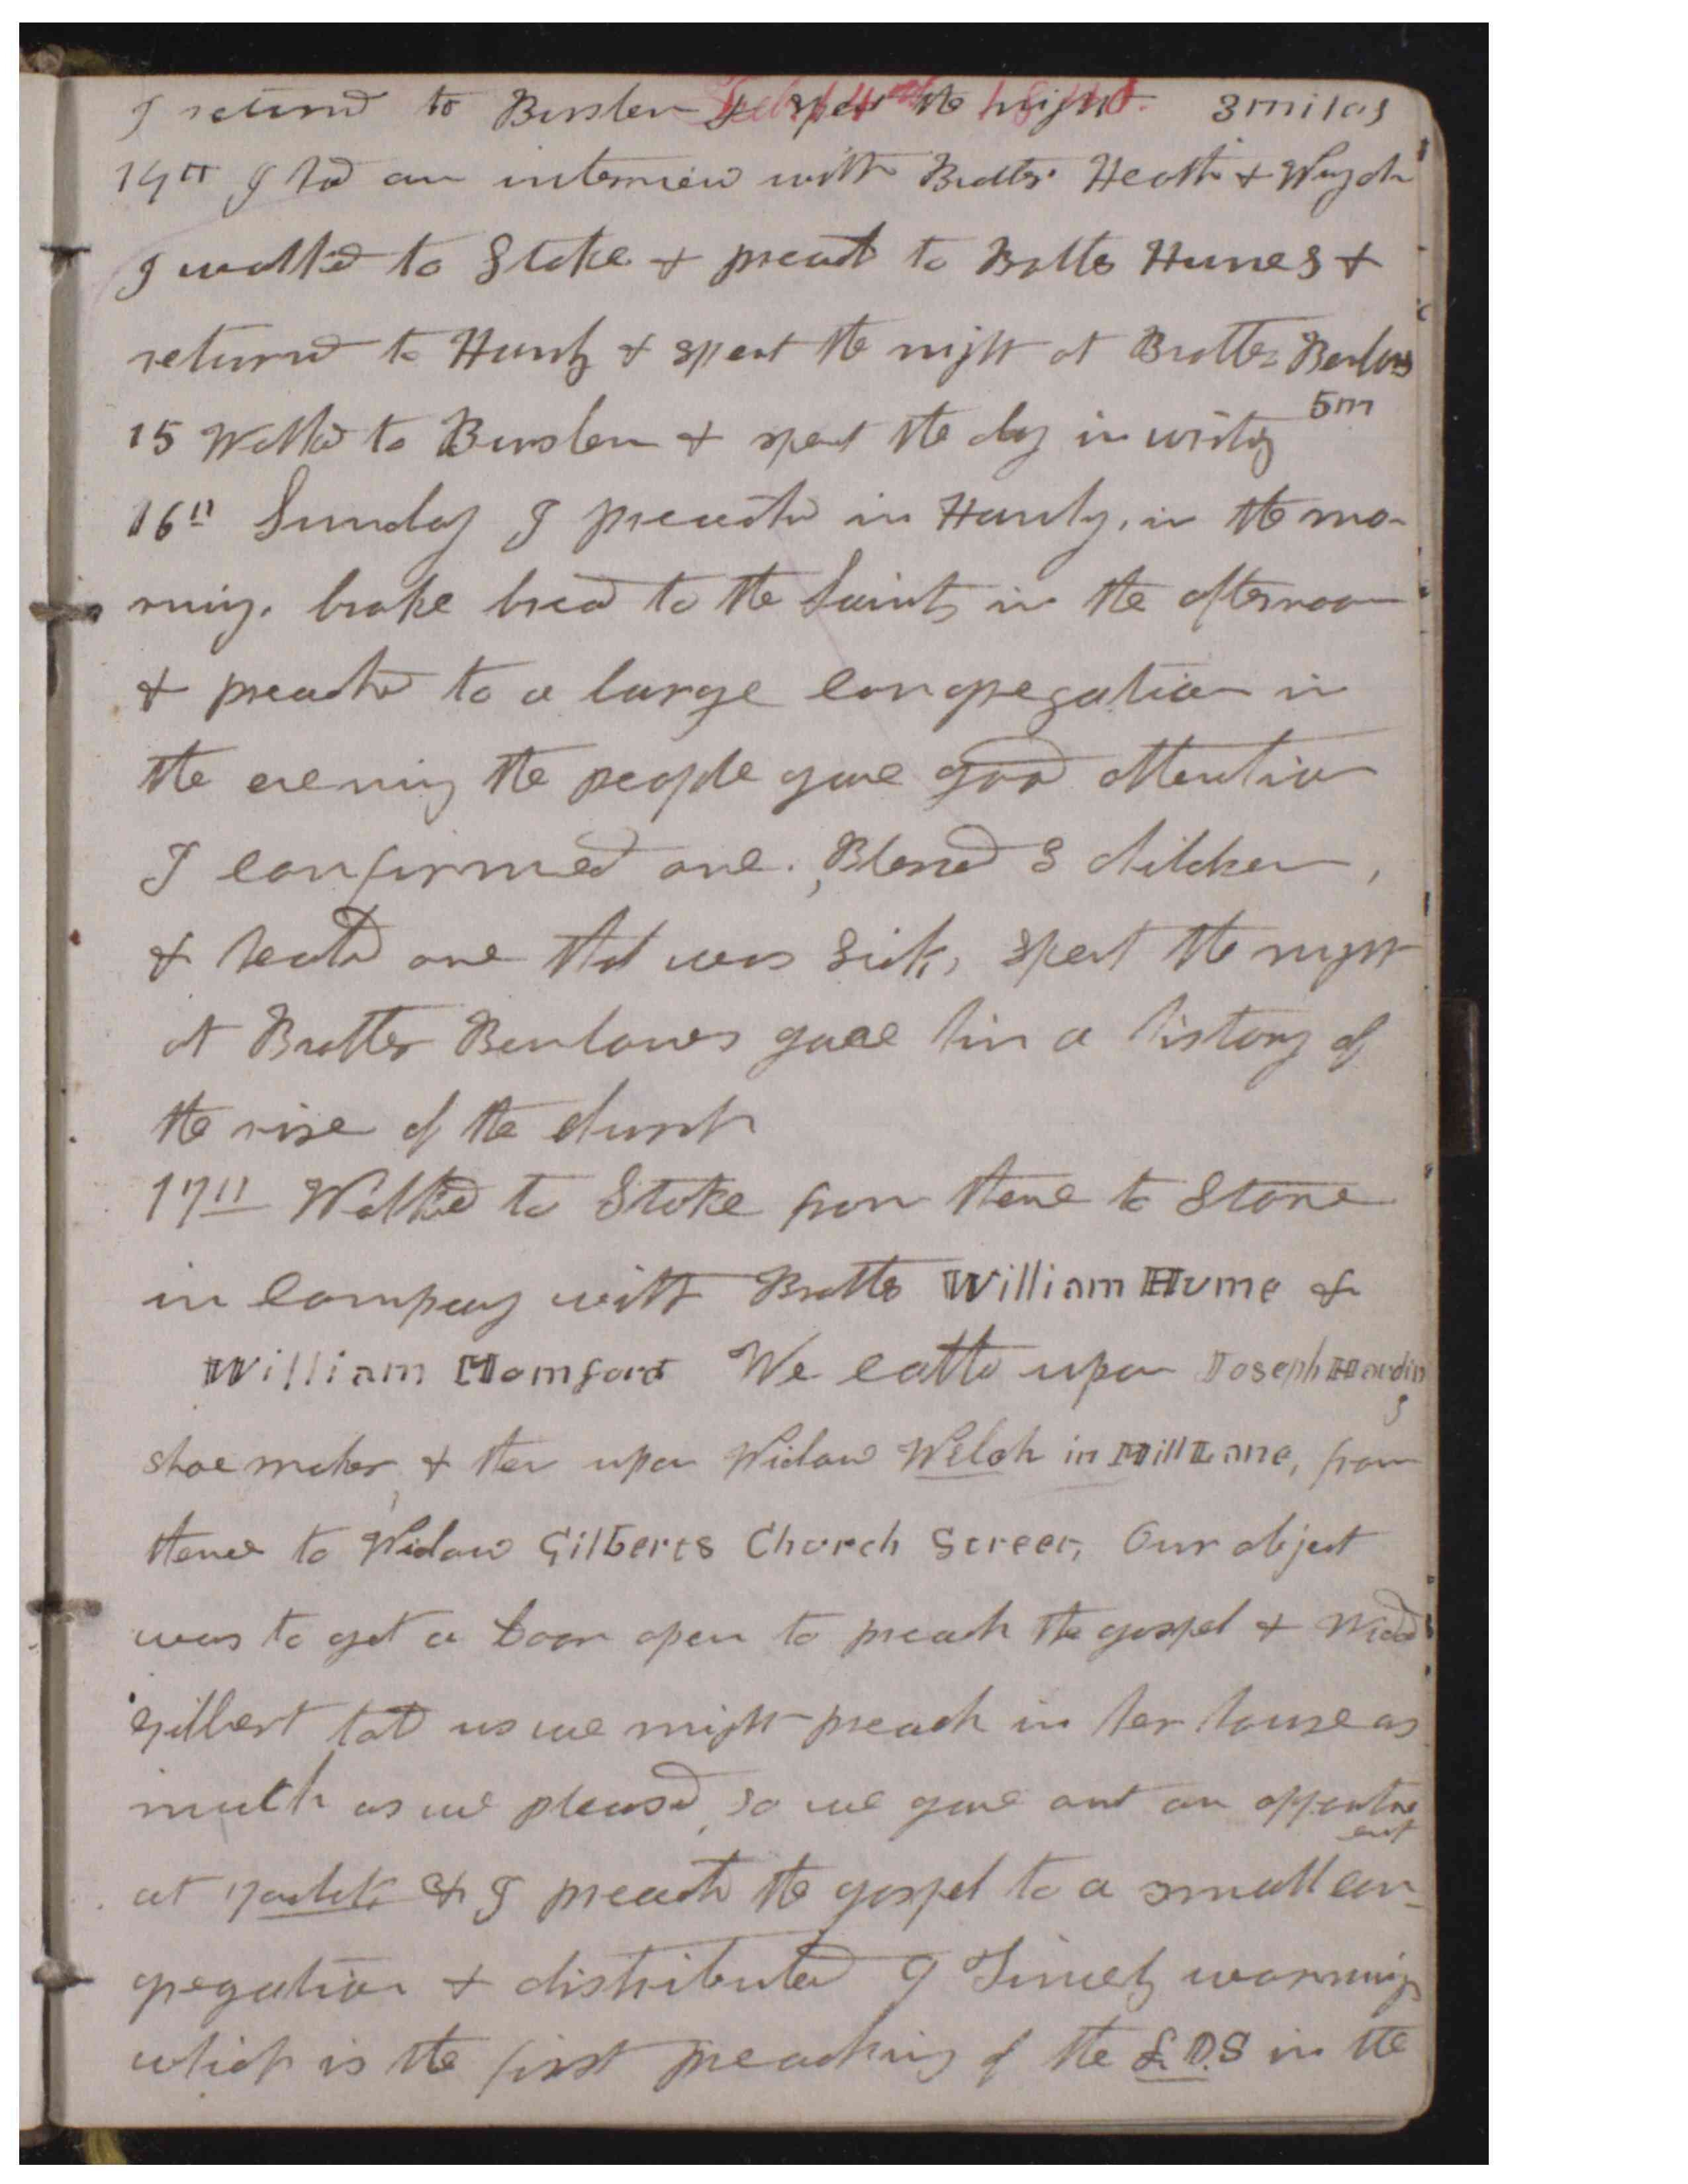 Feb 14th 1840.
I returnd to Burslem & spent the night. 3 miles
14th I had an interview with Brother Heath &
I walked to Stoke & preacd to Brother Humes &
returned to Hanly & spent the night at Brother Benlows
5m
15 Walked to Burslem & spent the day in writing
16th Sunday I preachd in Hanly, in the mo-
rning. broke bread to the Saints in the afternoon
& preachd to a large congregation in
the evening the people gave good attention
I confirmed one. Blessed 3 children,
& heald one that was sick, spent the night
at Brother Benlows gave him a history of
the rise of the church
17th Walked to Stoke from thence to Stone
in company with Brothers William Hume &
William Momford We called upon Joseph Harding
shoemaker & then upon Widow Welch in Mill Lane, from
thence to Widow Gilberts Church Street, Our object
was to get a door open to preach the gospel & Widow
Gilbert told us we might preach in her house as
much as we pleasd, so we gave out an appointment
at 7 oclock & I preachd the gospel to a small con-
gregation & distributed 9 Timely warnings
which is the first preaching of the L.D.S in the